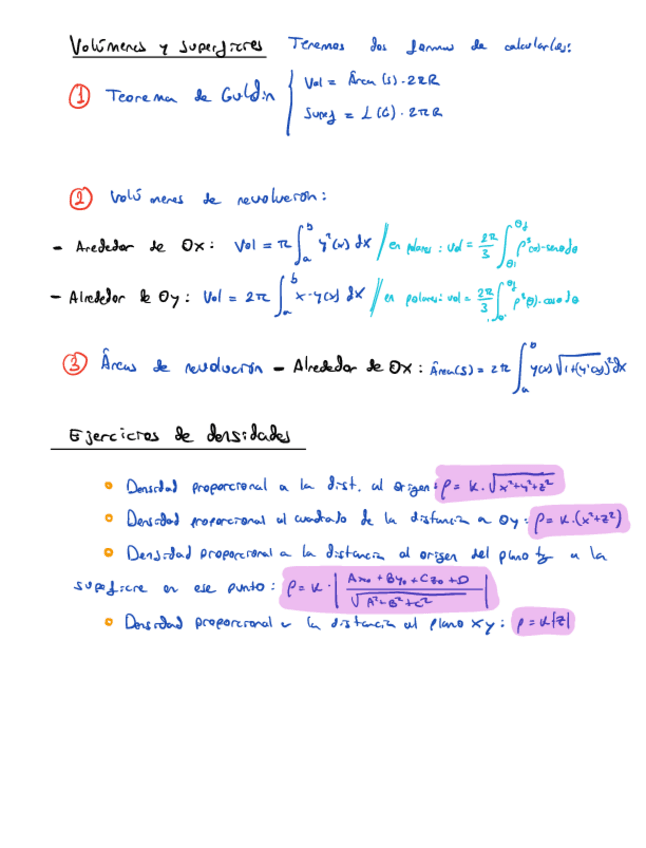 Volúmenes y superficies Tenemos dos formas de calcularlas:
① Teorema de Guldin { Vol = Área (S) · 2πR
Superf = L (C) · 2πR
② Volúmenes de revolución:
- Alrededor de Ox: Vol = π ∫_a^b y²(x) dx // en polares: vol = 2π/3 ∫_θi^θf ρ³(θ)·senθ dθ
- Alrededor de Oy: Vol = 2π ∫_a^b x·y(x) dx // en polares: vol = 2π/3 ∫_θi^θf ρ³(θ)·cosθ dθ
③ Áreas de revolución - Alrededor de Ox: Área(S) = 2π ∫_a^b y(x) √(1+(y'(x))²) dx
Ejercicios de densidades
• Densidad proporcional a la dist. al origen: ρ = K · √(x²+y²+z²)
• Densidad proporcional al cuadrado de la distancia a Oy: ρ = K · (x²+z²)
• Densidad proporcional a la distancia al origen del plano tg a la
superficie en ese punto: ρ = K · | (Ax₀ + By₀ + Cz₀ + D) / √(A²+B²+C²) |
• Densidad proporcional a la distancia al plano xy: ρ = K|z|